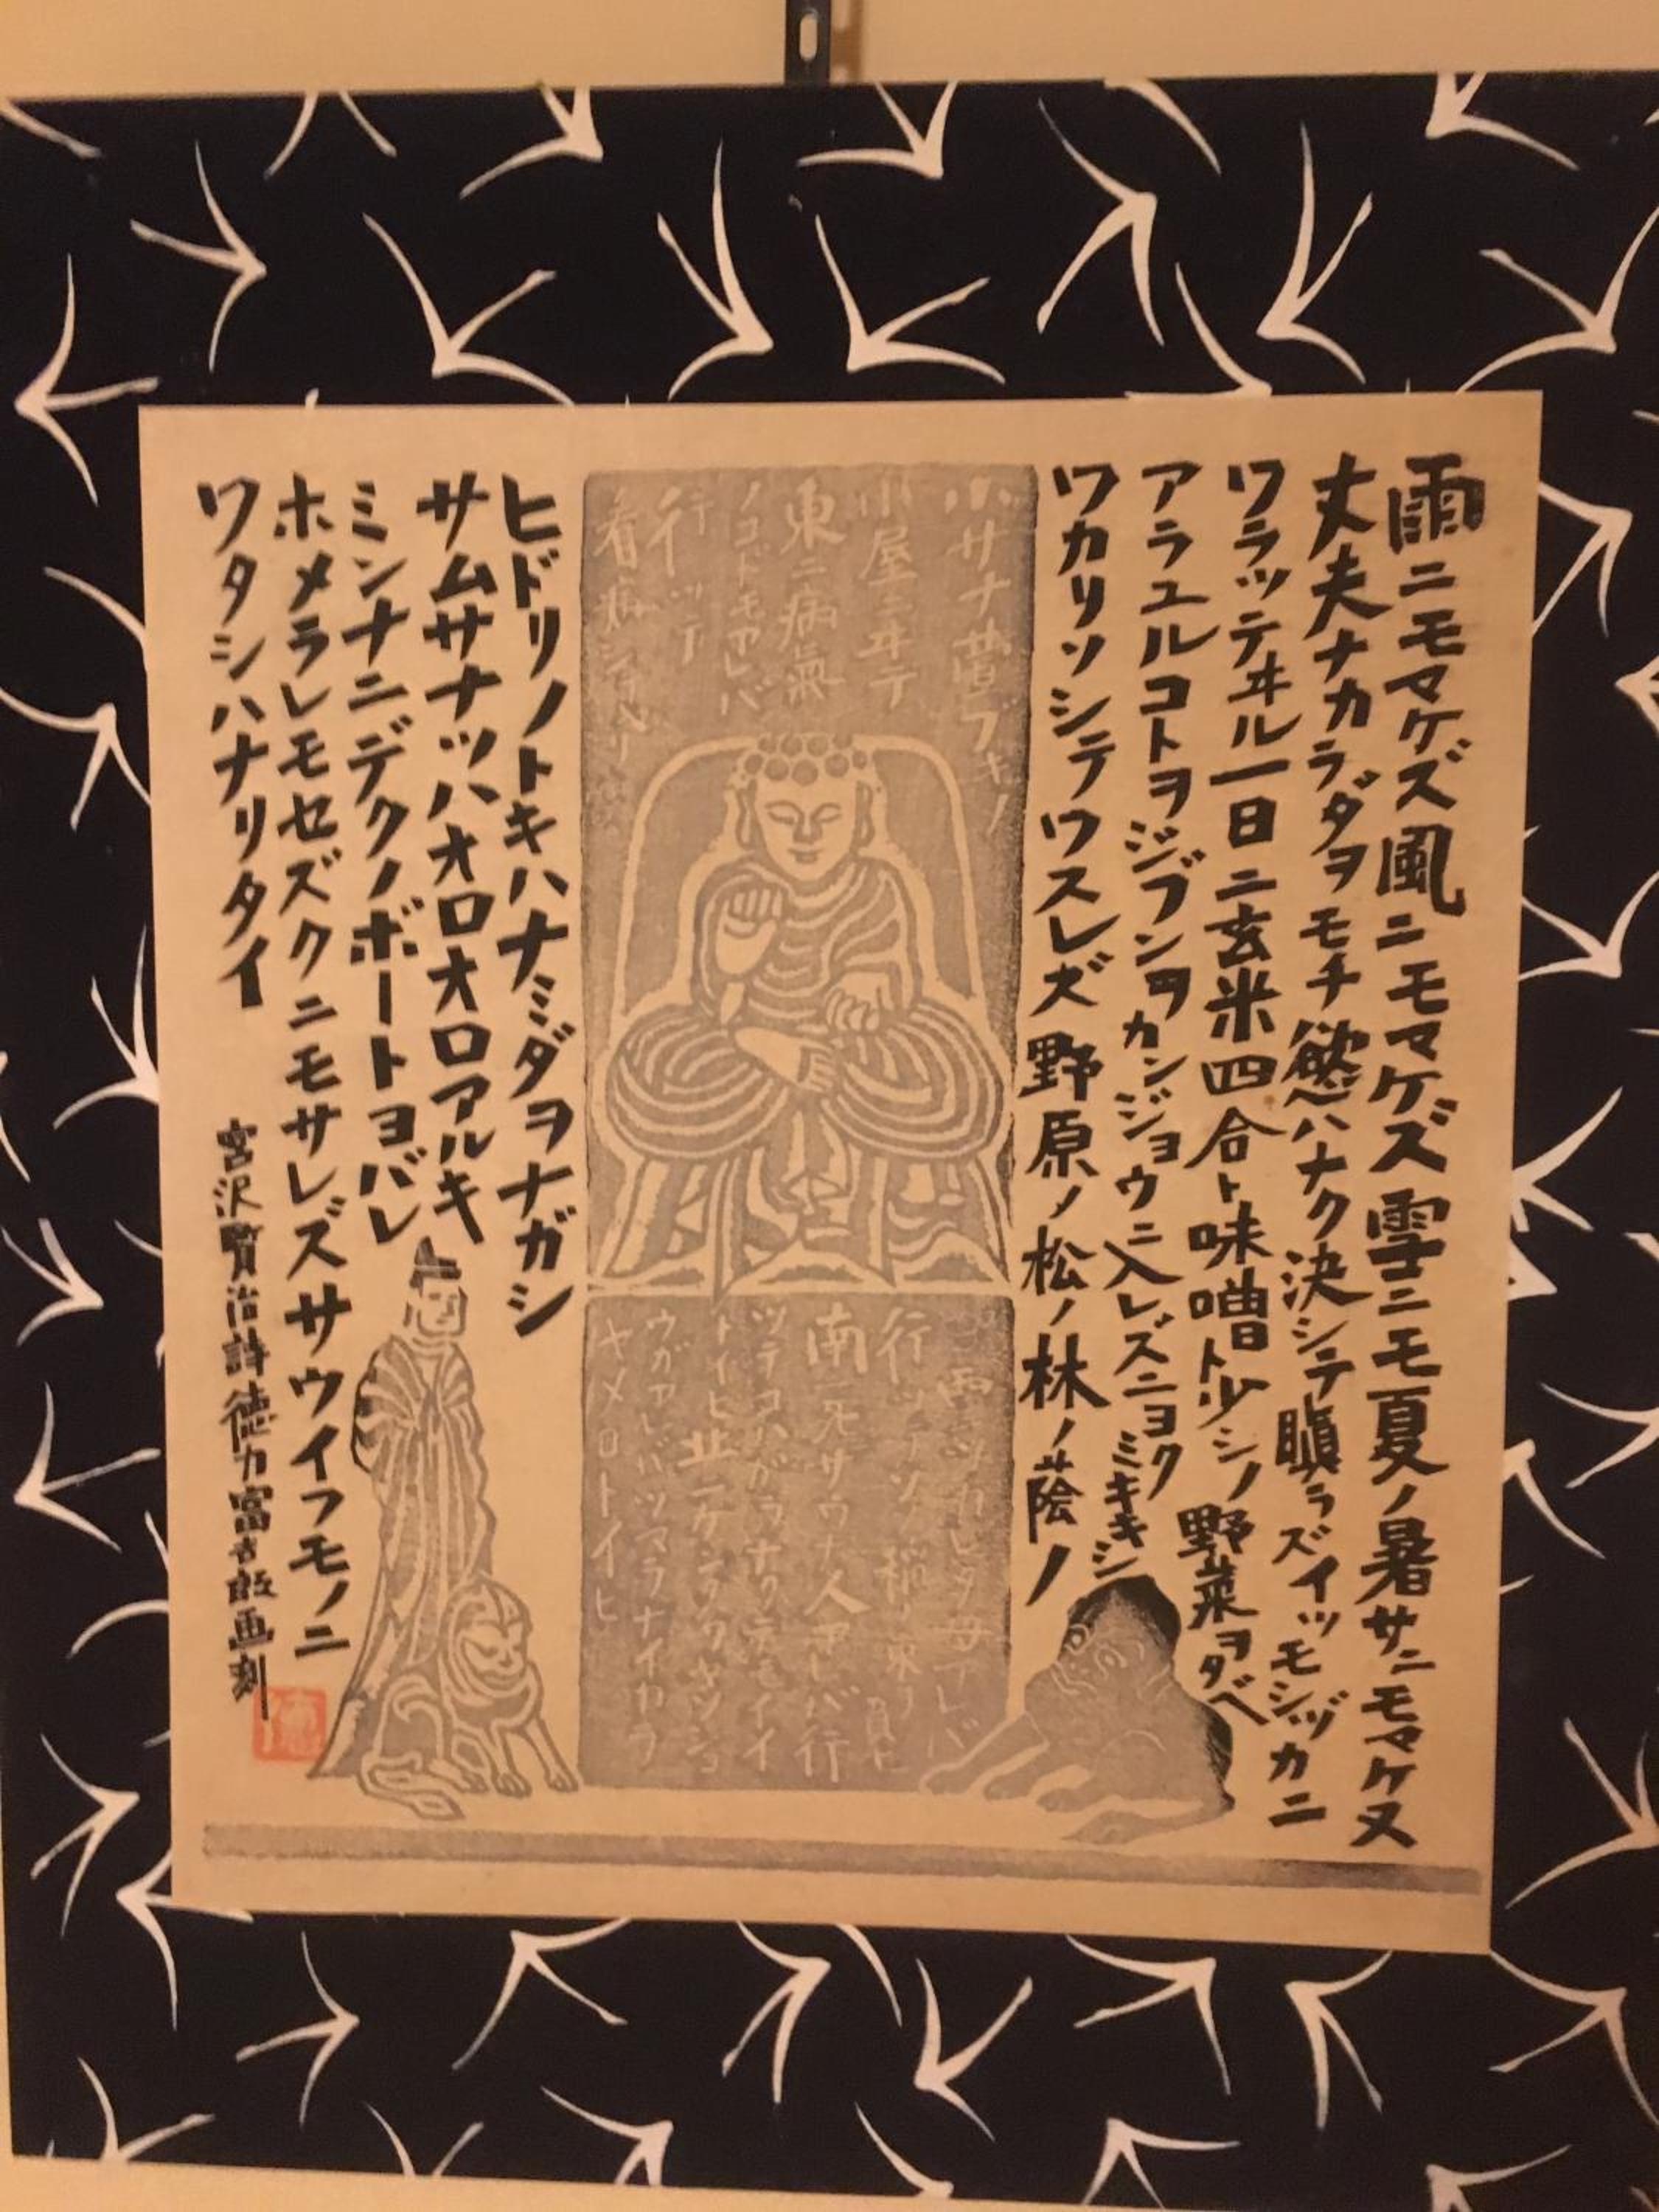 雨ニモマケズ風ニモマケズ雪ニモ夏ノ暑サニモマケヌ
丈夫ナカラダヲモチ慾ハナク決シテ瞋ラズイツモシヅカニ
ワラッテヰル一日ニ玄米四合ト味噌ト少シノ野菜ヲタベ
アラユルコトヲジブンヲカンジョウニ入レズニヨクミキキシ
ワカリソシテワスレズ野原ノ松ノ林ノ蔭ノ
小サナ萱ブキノ
小屋ニヰテ
東ニ病氣
ノコドモアレバ
行ッテ
看病シテヤリ
西ニツカレタ母アレバ
行ッテソノ稲ノ束ヲ負ヒ
南ニ死サウナ人アレバ行
ッテコハガラナクテモイイ
トイヒ北ニケンクワヤソショ
ウガアレバツマラナイカラ
ヤメロトイヒ
ヒドリノトキハナミダヲナガシ
サムサナツハオロオロアルキ
ミンナニデクノボートヨバレ
ホメラレモセズクニモサレズサウイフモノニ
ワタシハナリタイ
宮沢賢治詩徳力富吉郎画刻